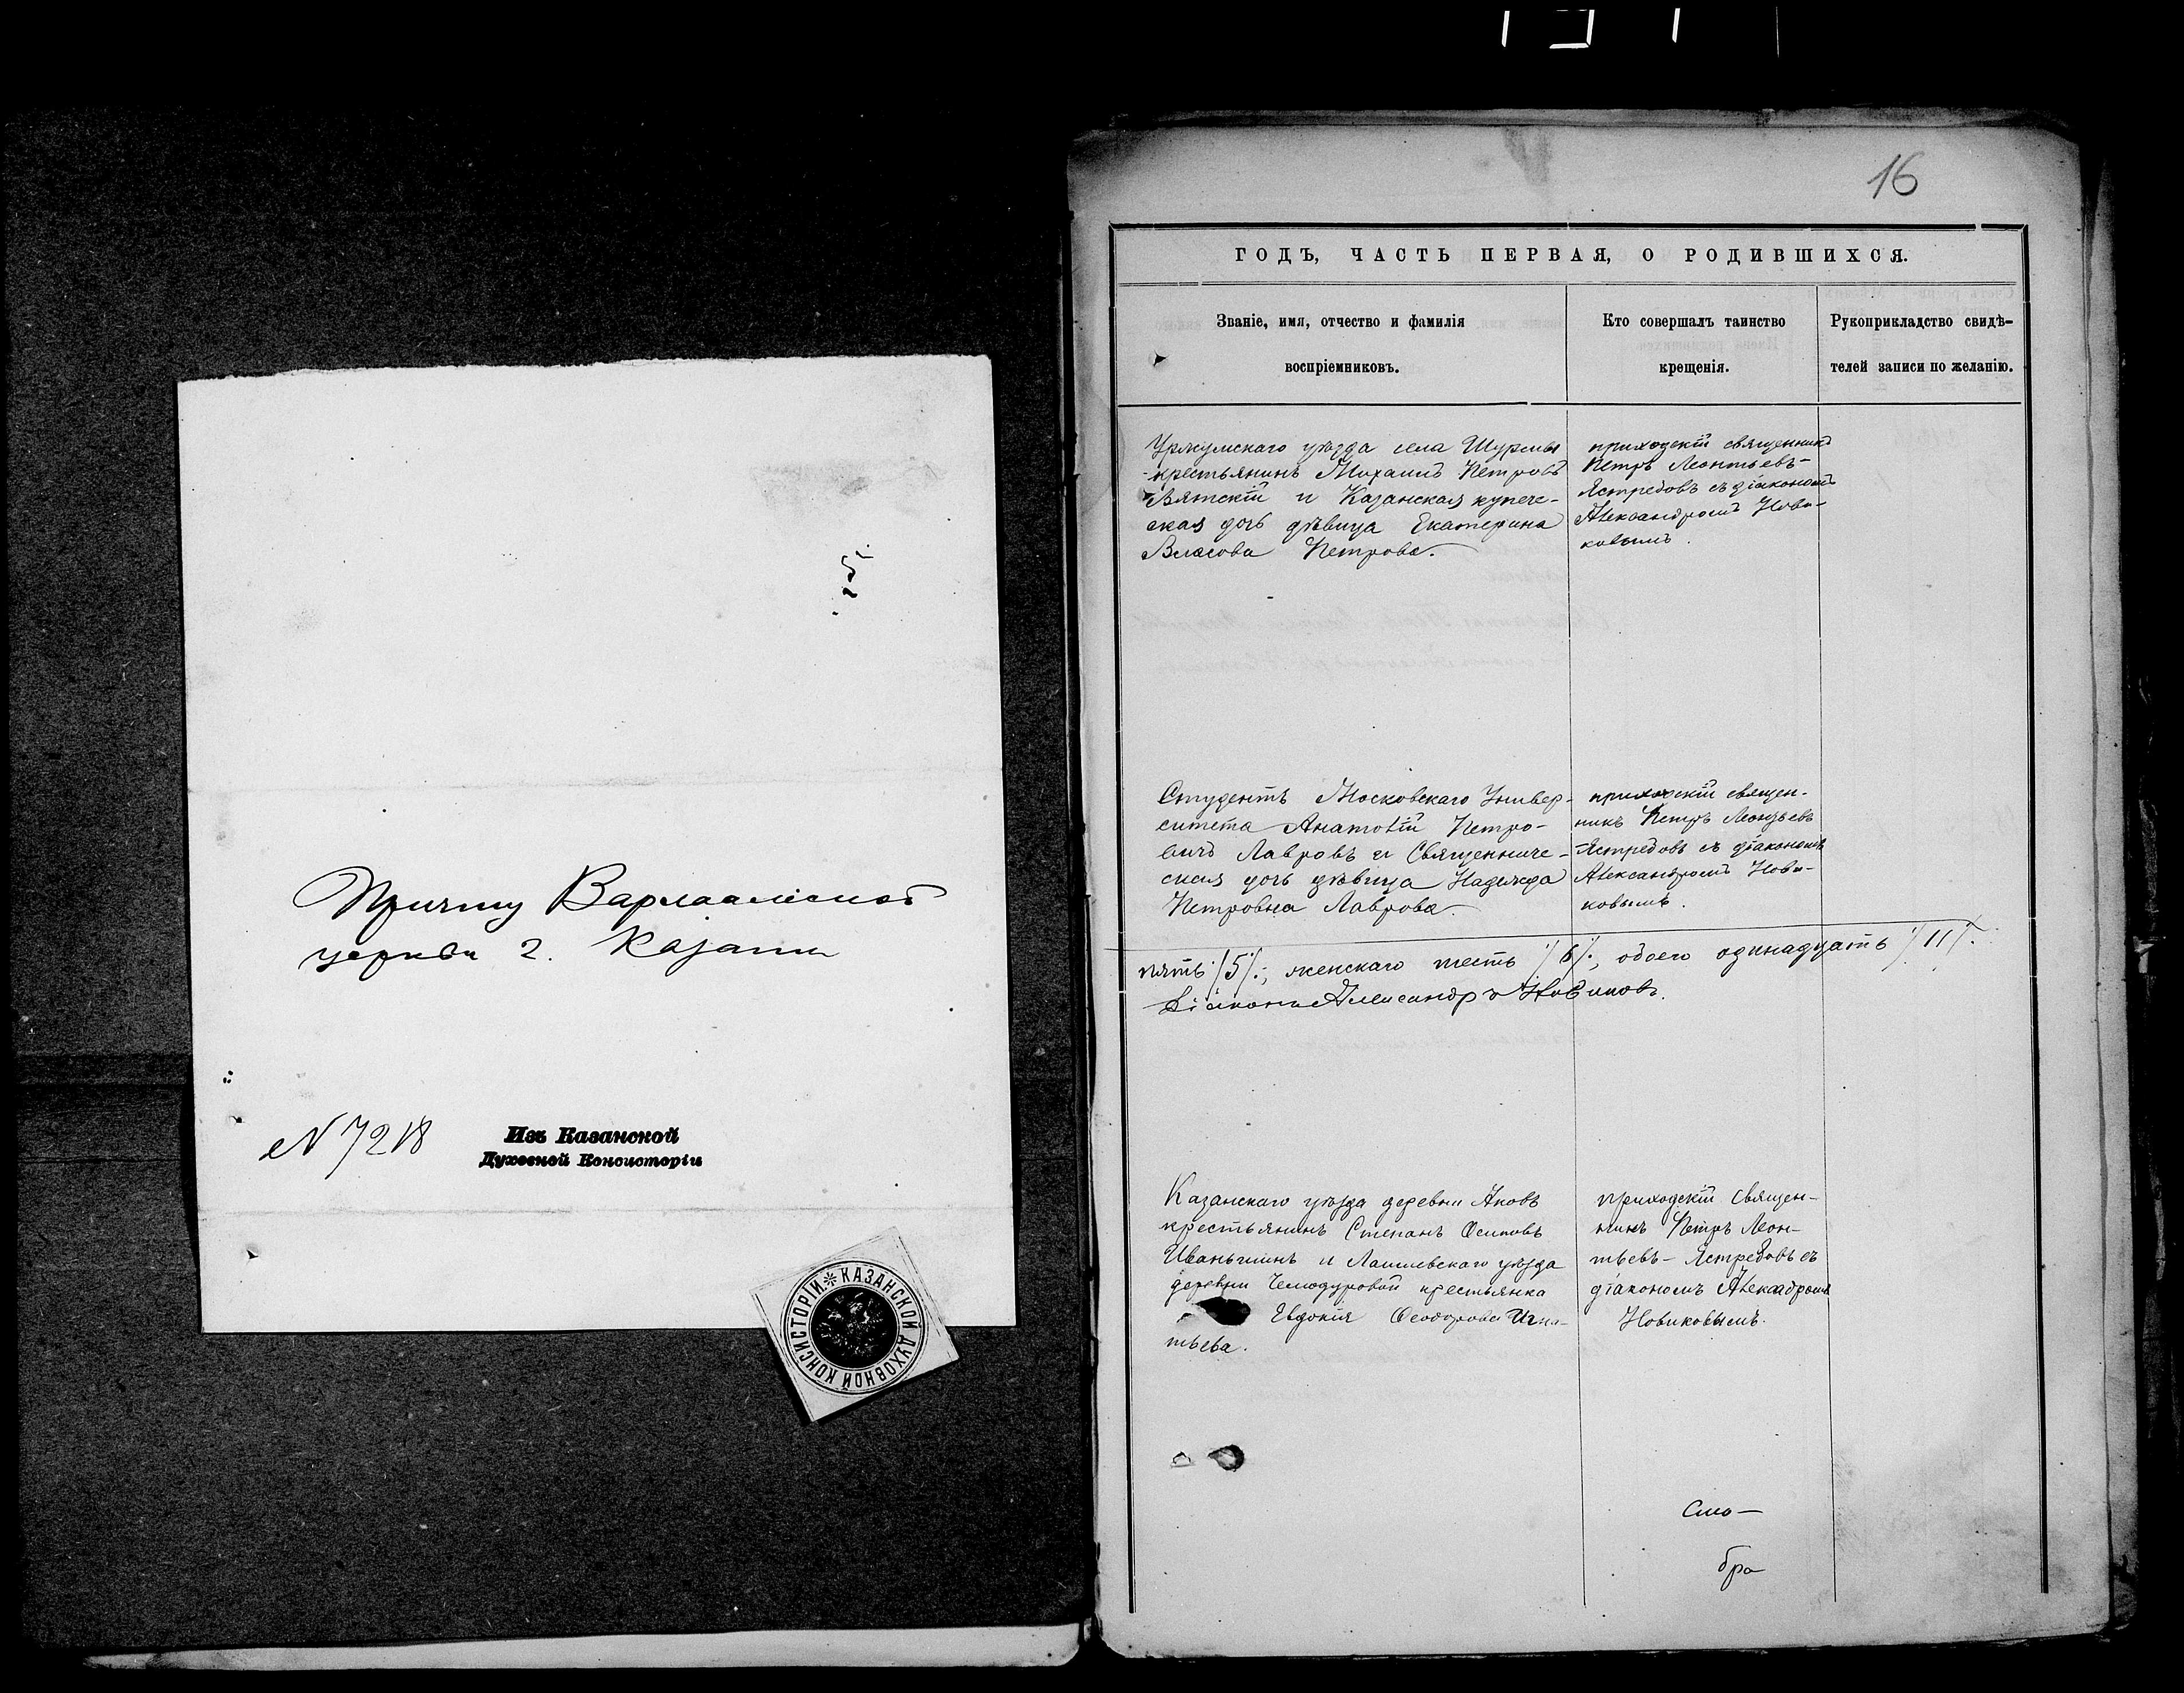 Причту Варлаамской
церкви г. Казани
N 7218
Изъ Казанской
Духовной Консисторіи
КАЗАНСКОЙ ДУХОВНОЙ КОНСИСТОРІИ
16
ГОДЪ, ЧАСТЬ ПЕРВАЯ, О РОДИВШИХСЯ.
Званіе, имя, отчество и фамилія
воспріемниковъ.
Кто совершалъ таинство
крещенія.
Рукоприкладство свидѣ-
телей записи по желанію.
Уржумскаго уѣзда села Шурмы
крестьянинъ Михаилъ Петровъ
Вятскій и Казанская купече-
ская дочь дѣвица Екатерина
Власова Петрова.
приходскій священникъ
Петръ Леонтьевъ-
Ястребовъ съ діакономъ
Александромъ Нови-
ковымъ.
Студентъ Московскаго Универ-
ситета Анатолій Петро-
вичъ Лавровъ и Священниче-
ская дочь дѣвица Надежда
Петровна Лаврова.
приходскій священ-
никъ Петръ Леонтьевъ
-Ястребовъ съ діакономъ
Александромъ Нови-
ковымъ.
пять /5/; женскаго шесть /6/; обоего одинадцать /11/.
Діаконъ Александръ Новиковъ.
Казанскаго уѣзда деревни
крестьянинъ Степанъ Осиповъ
Иваньшинъ и Лаишевскаго уѣзда
деревни Чемодуровой крестьянка
Евдокія Феодорова Игна-
тьева.
приходскій Священ-
никъ Петръ Леон-
тьевъ-Ястребовъ съ
діакономъ Александромъ
Новиковымъ.
Смо-
бра